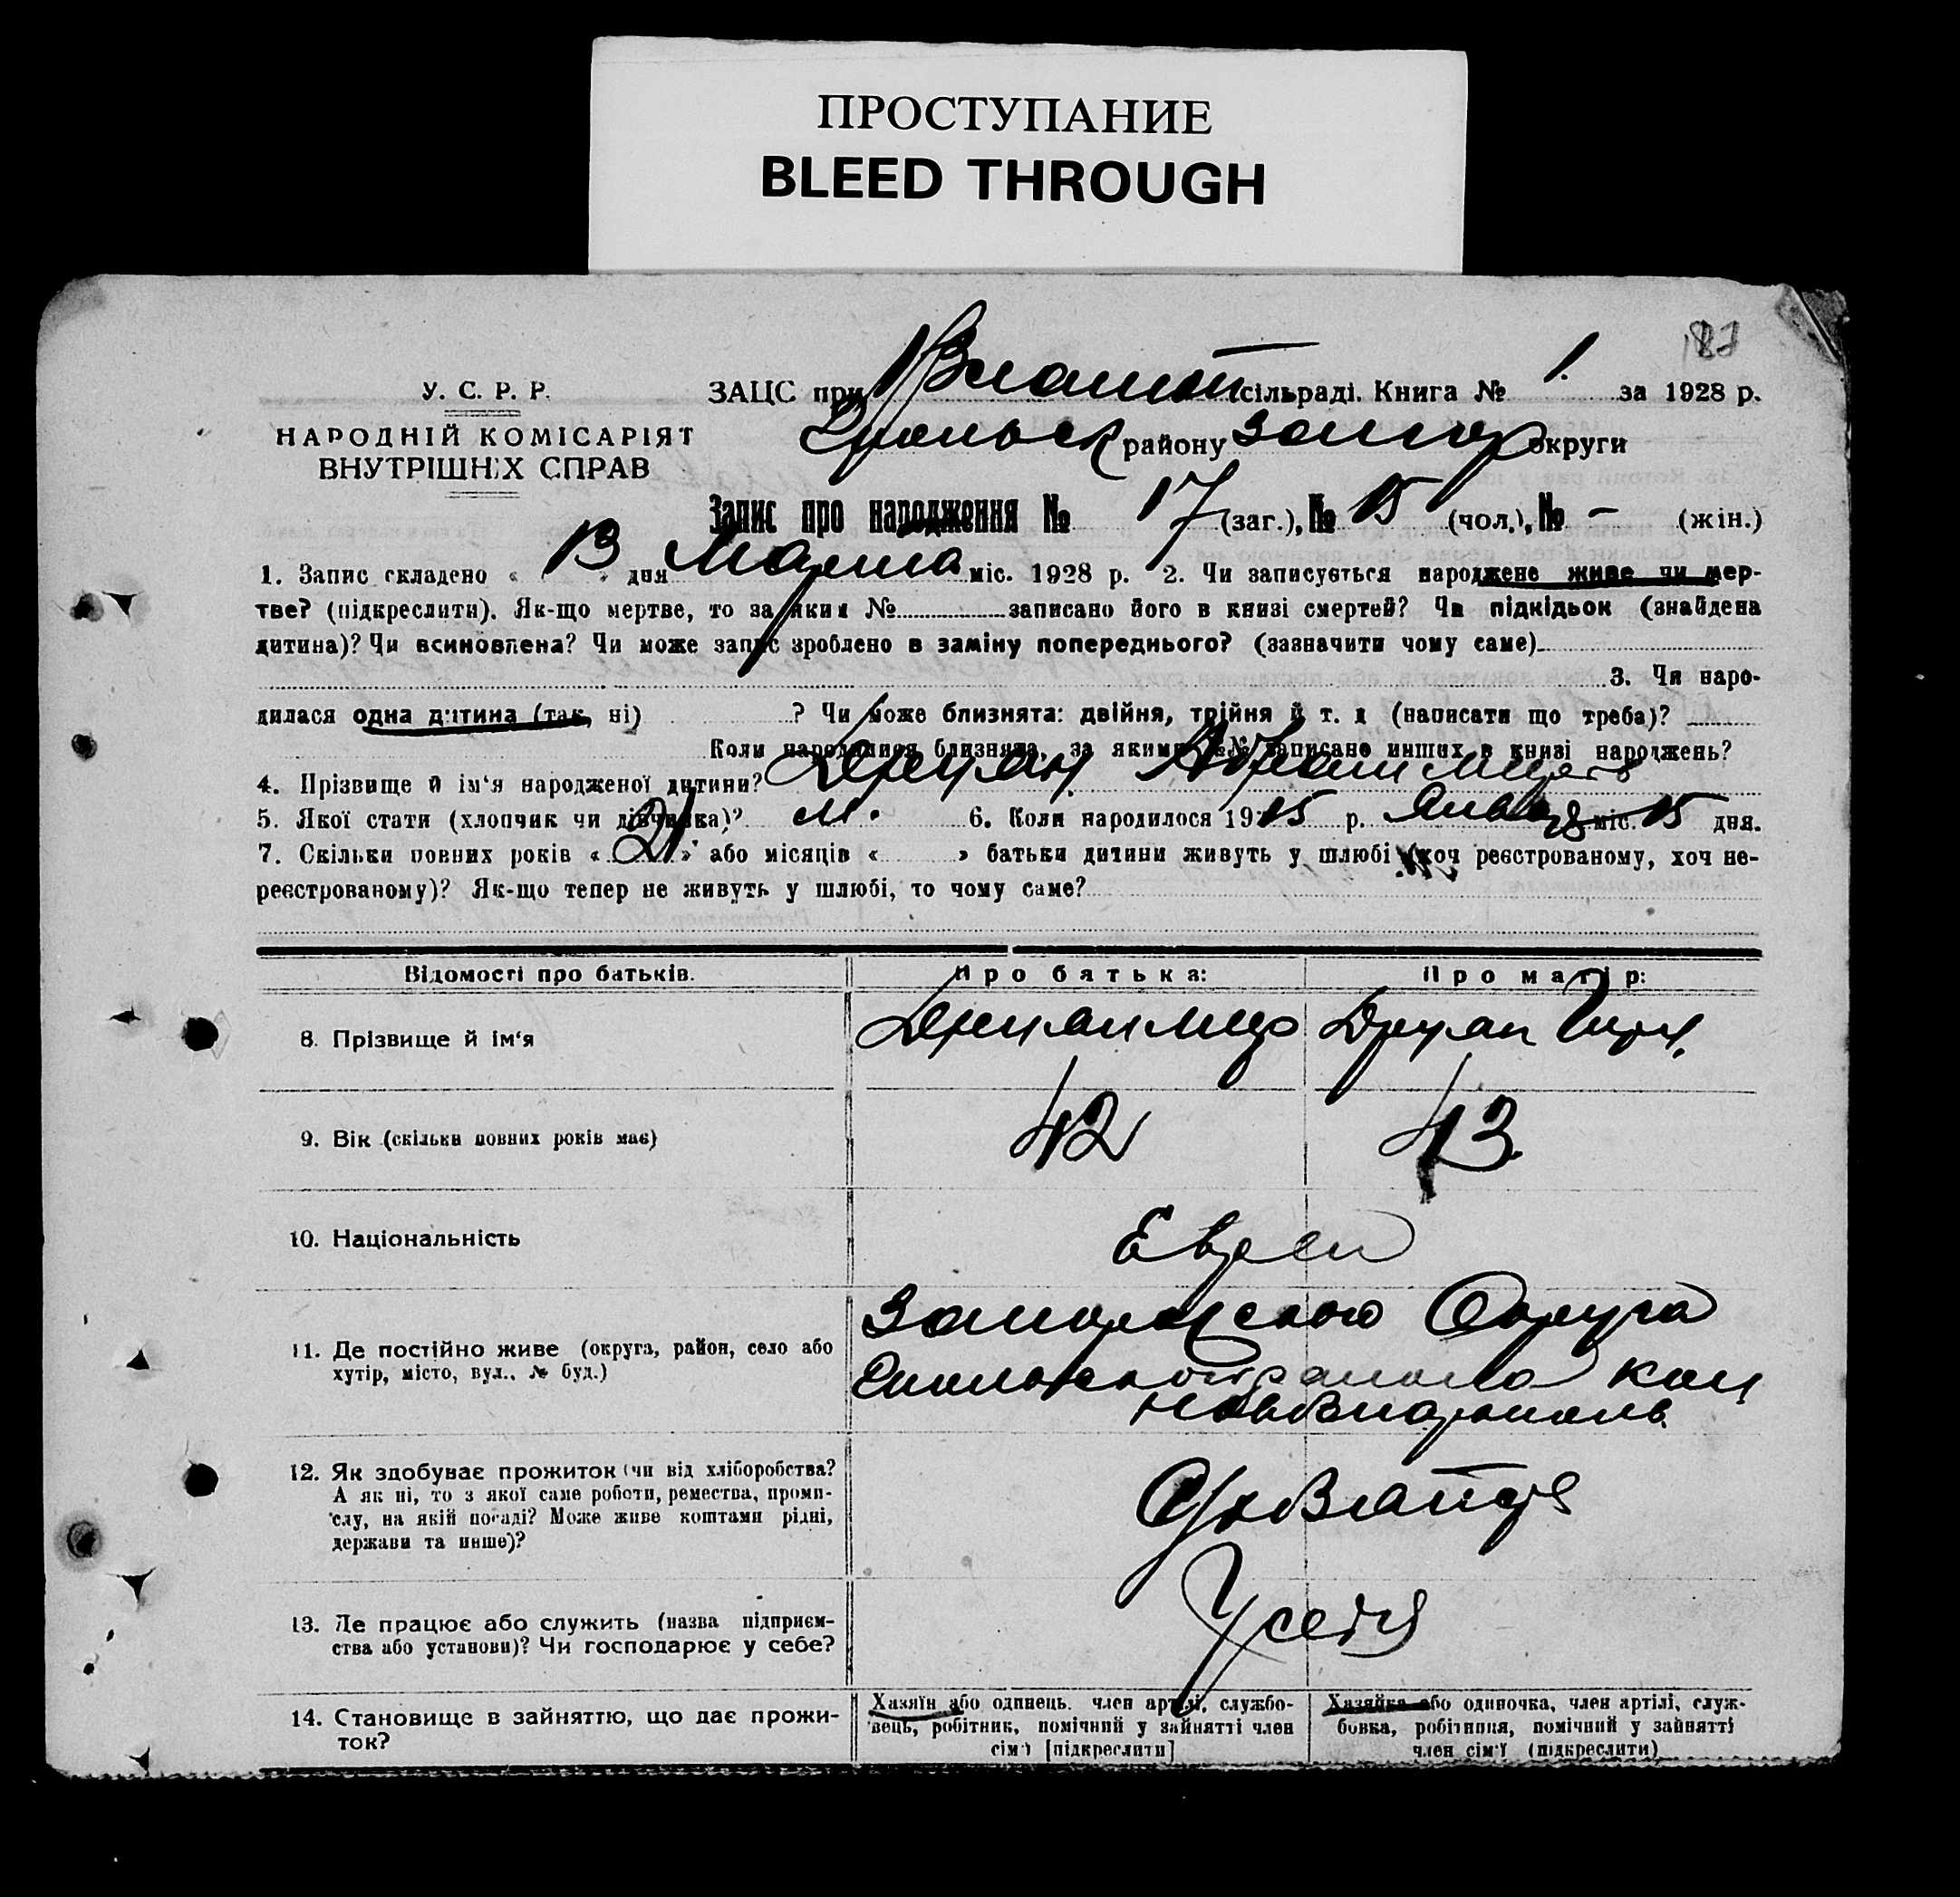 ПРОСТУПАНИЕ
BLEED THROUGH
У. С. Р. Р.
НАРОДНІЙ КОМІСАРІЯТ
ВНУТРІШНІХ СПРАВ
187
ЗАЦС при сільраді. Книга № 1. за 1928 р.
району Запор округи
Запис про народження № 17 (заг.), № 15 (чол.), № - (жін.)
1. Запис складено « 13 » дня Марта міс. 1928 р. 2. Чи записується народжене живе чи мер-
тве? (підкреслити). Як-що мертве, то за яким № записано його в книзі смертей? Чи підкідьок (знайдена
дитина)? Чи всиновлена? Чи може запис зроблено в заміну попереднього? (зазначити чому саме)
3. Чи наро-
дилася одна дитина (так, ні) ? Чи може близнята: двійня, трійня й т. д (написати що треба)?
Коли народилися близнята, за якими №№ записано инших в книзі народжень?
4. Прізвище й ім‘я народженої дитини?
5. Якої стати (хлопчик чи дівчинка)? м. 6. Коли народилося 1915 р. Января міс. 15 дня.
7. Скільки повних років « 21 » або місяців « » батьки дитини живуть у шлюбі (хоч реєстрованому, хоч не-
реєстрованому)? Як-що тепер не живуть у шлюбі, то чому саме?
Відомості про батьків.
Про батька:
Про матір:
8. Прізвище й ім‘я
9. Вік (скільки повних років має)
42
43
10. Національність
Евреи
11. Де постійно живе (округа, район, село або
хутір, місто, вул., № буд.)
Запорожского Округа
12. Як здобуває прожиток (чи від хліборобства?
А як ні, то з якої саме роботи, ремества, проми-
слу, на якій посаді? Може живе коштами рідні,
держави та инше)?
13. Де працює або служить (назва підприєм-
ства або установи)? Чи господарює у себе?
У себя
14. Становище в зайняттю, що дає прожи-
ток?
Хазяїн або одинець, член артілі, службо-
вець, робітник, помічний у зайнятті член
сім‘ї [підкреслити]
Хазяйка або одиночка, член артілі, служ-
бовка, робітниця, помічний у зайнятті
член сім‘ї (підкреслити)